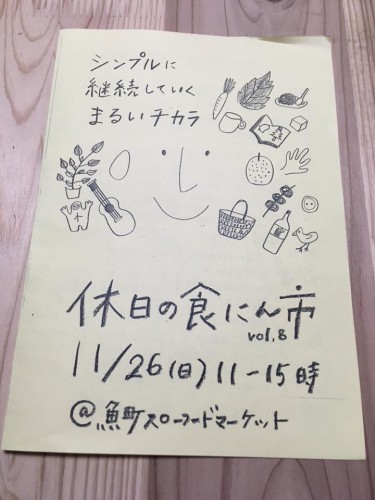 シンプルに
継続していく
まるいチカラ
休日の食にん市
vol.8
11/26(日)11-15時
@魚町スローフードマーケット